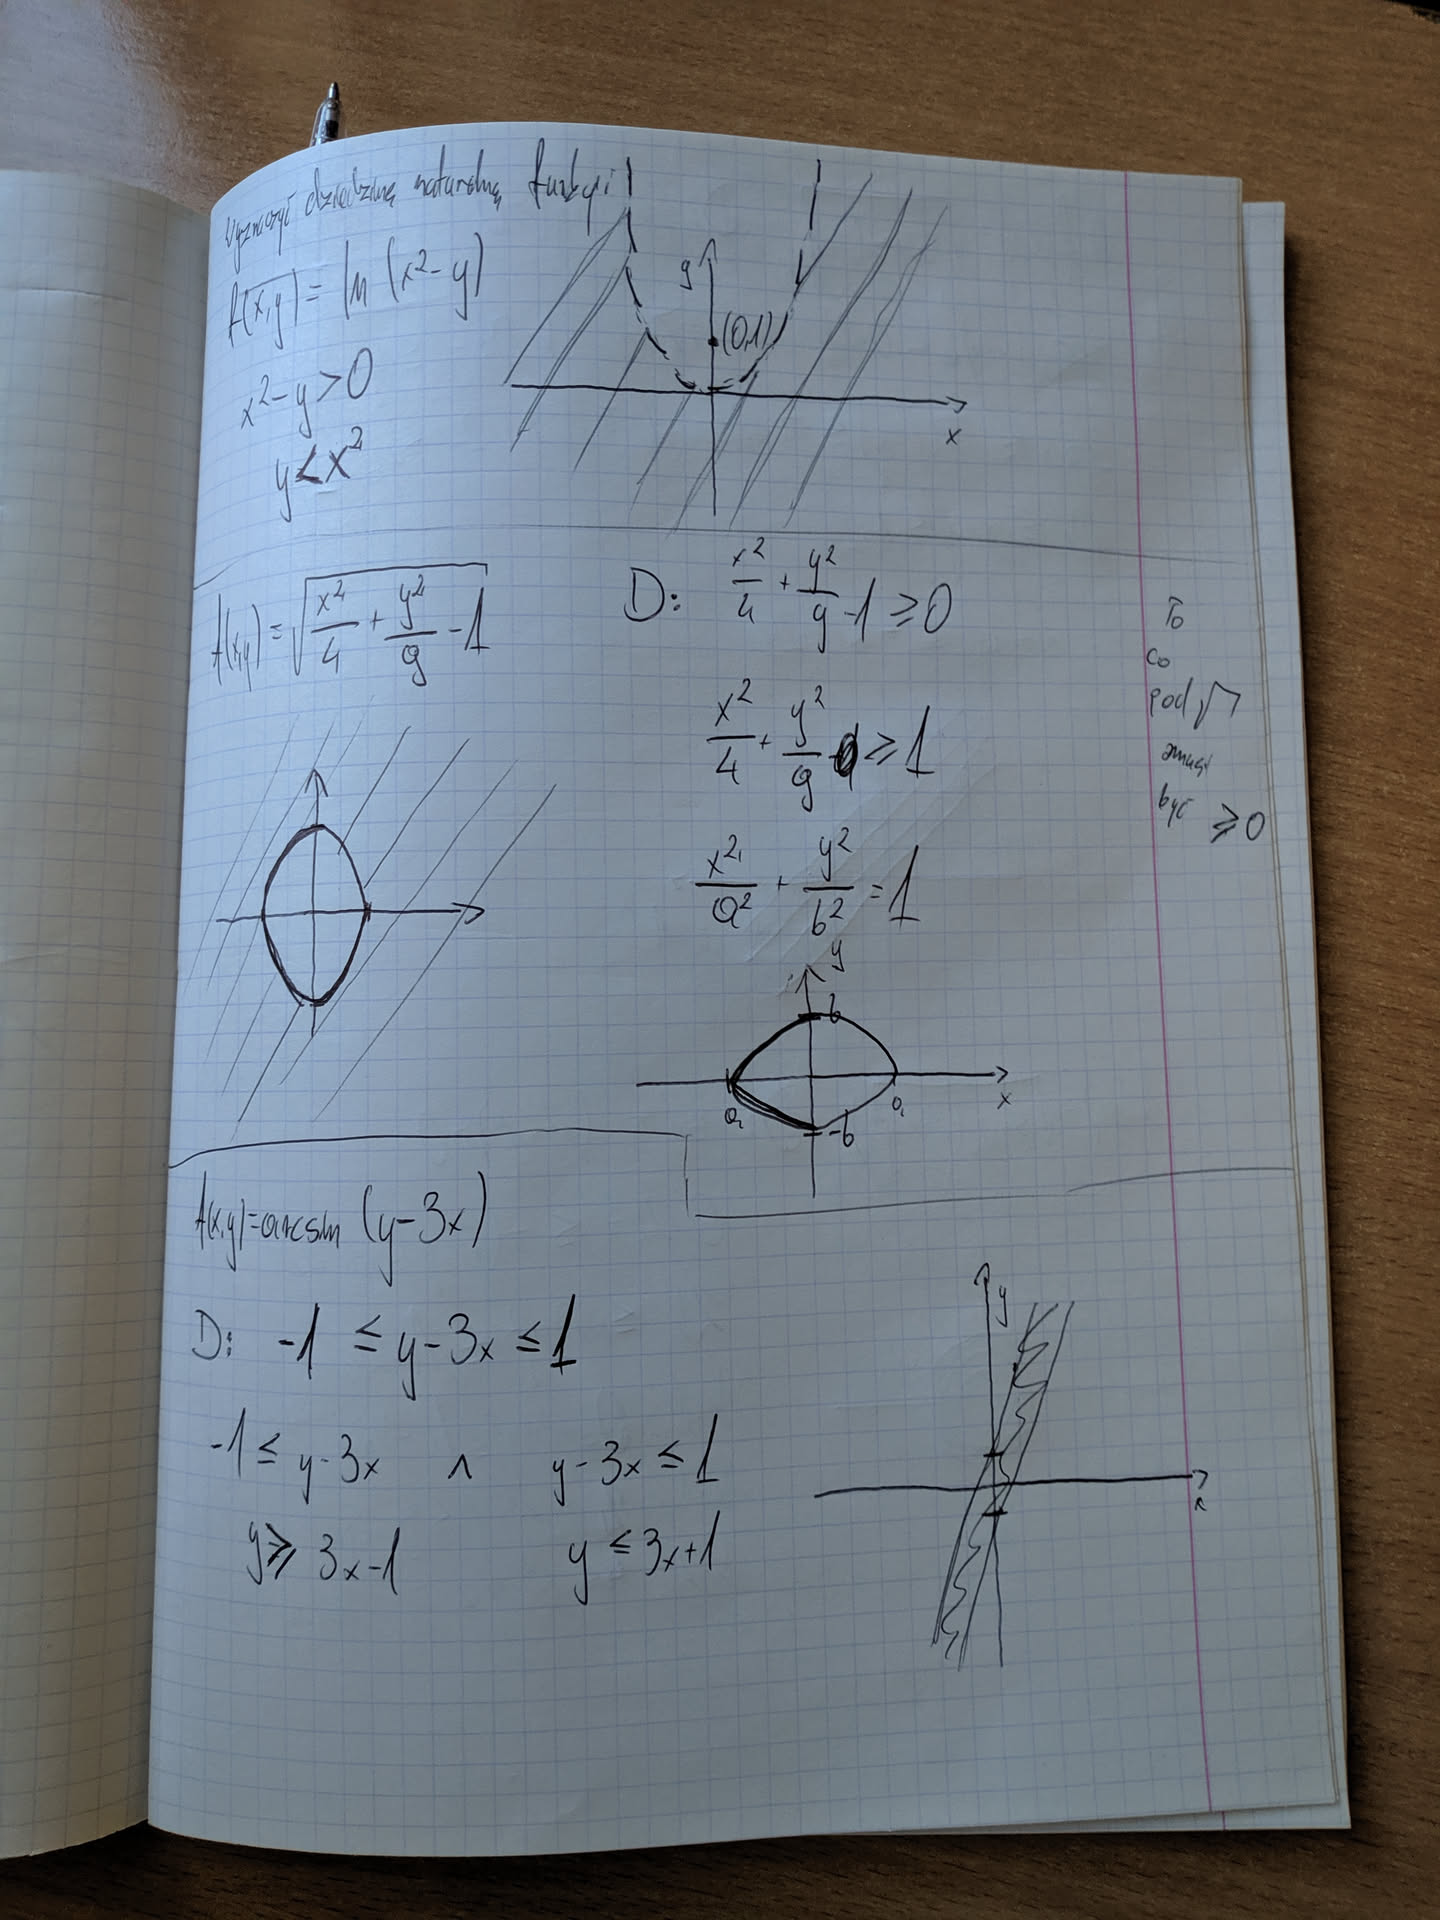 Wyznaczyć dziedzinę naturalną funkcji
f(x,y) = ln (x² - y)
x² - y > 0
y < x²
y
(0,1)
x
f(x,y) = √(x²/4 + y²/9 - 1)
D: x²/4 + y²/9 - 1 ≥ 0
x²/4 + y²/9 ≥ 1
x²/a² + y²/b² = 1
To
co
pod √
musi
być ≥ 0
y
b
a
a
x
-b
f(x,y) = arcsin (y - 3x)
D: -1 ≤ y - 3x ≤ 1
-1 ≤ y - 3x ∧ y - 3x ≤ 1
y ≥ 3x - 1 y ≤ 3x + 1
y
x